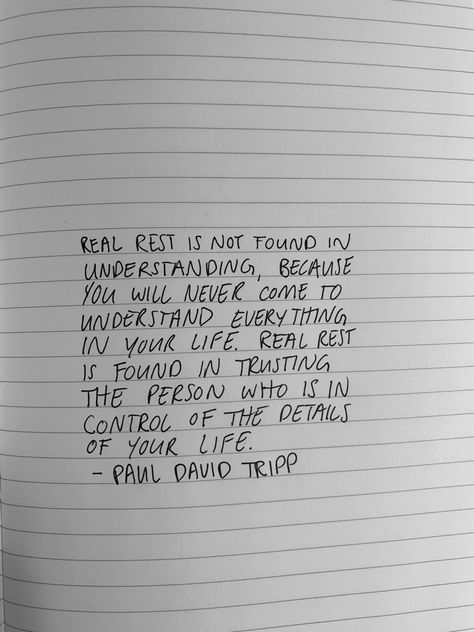 REAL REST IS NOT FOUND IN
UNDERSTANDING, BECAUSE
YOU WILL NEVER COME TO
UNDERSTAND EVERYTHING
IN YOUR LIFE. REAL REST
IS FOUND IN TRUSTING
THE PERSON WHO IS IN
CONTROL OF THE DETAILS
OF YOUR LIFE.
- PAUL DAVID TRIPP